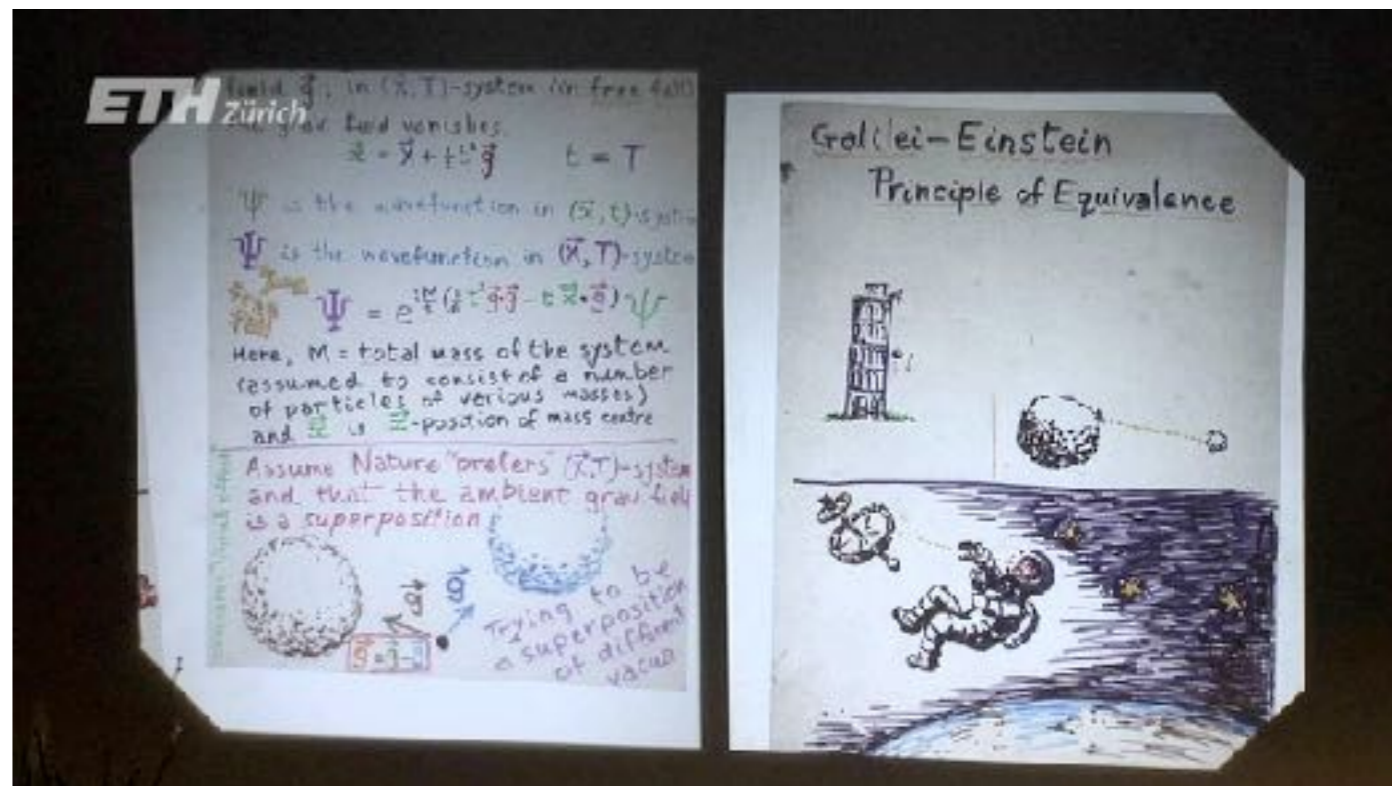 ETH Zürich
field g⃗; in (x⃗,T)-system (in free fall)
the grav field vanishes.
x⃗ = X⃗ + ½t²g⃗ t = T
ψ is the wavefunction in (x⃗,t)-system
Ψ is the wavefunction in (X⃗,T)-system
Ψ = e ψ
Here, M = total mass of the system
(assumed to consist of a number
of particles of various masses)
and is x⃗-position of mass centre
Assume Nature "prefers" (X⃗,T)-system
and that the ambient grav field
is a superposition
g⃗ g⃗
Trying to be
a superposition
of different
vacua
Galilei-Einstein
Principle of Equivalence